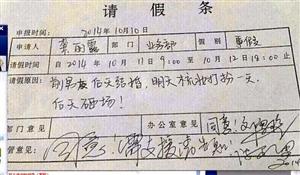 请假条
申报时间：2014年10月10日
申请人 部门 业务部 假别 事假
请假时间 自2014年10月11日9:00至10月12日18:00止
请假原因：前男友后天结婚，明天梳妆打扮一天
后天砸场！
部门意见 办公室意见 同意！
管意见 同意！